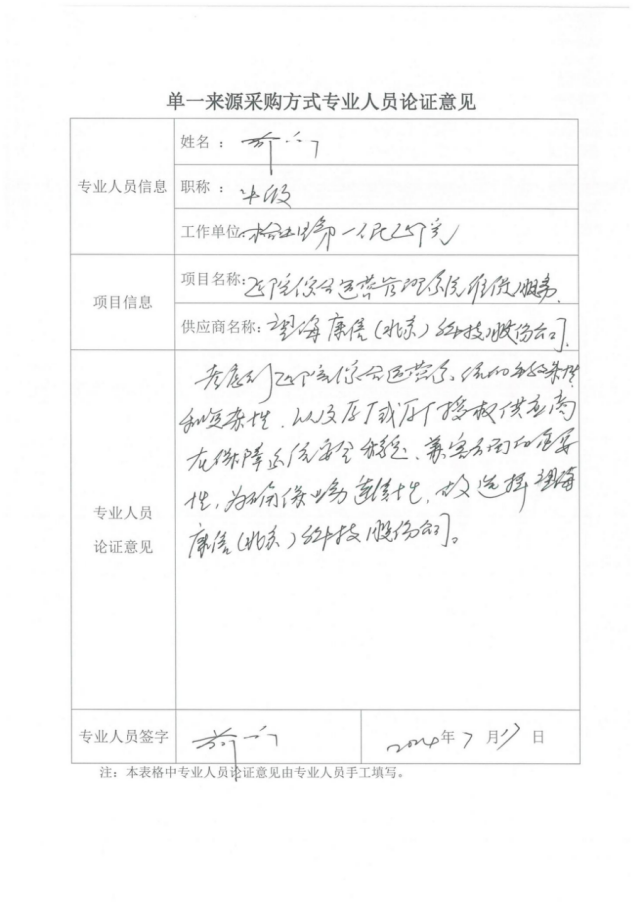 单一来源采购方式专业人员论证意见
专业人员信息
姓名：
职称：
工作单位: 第一人民医院
项目信息
项目名称: 医院综合运营管理系统维保服务
供应商名称: 望海康信(北京)科技股份公司
专业人员
论证意见
考虑到医院综合运营系统的
和复杂性，以及原厂或原厂授权供应商
在保障系统安全稳定、兼容方面的重要
性，为确保业务连续性，故选择望海
康信(北京)科技股份公司。
专业人员签字
2024年7月17日
注：本表格中专业人员论证意见由专业人员手工填写。